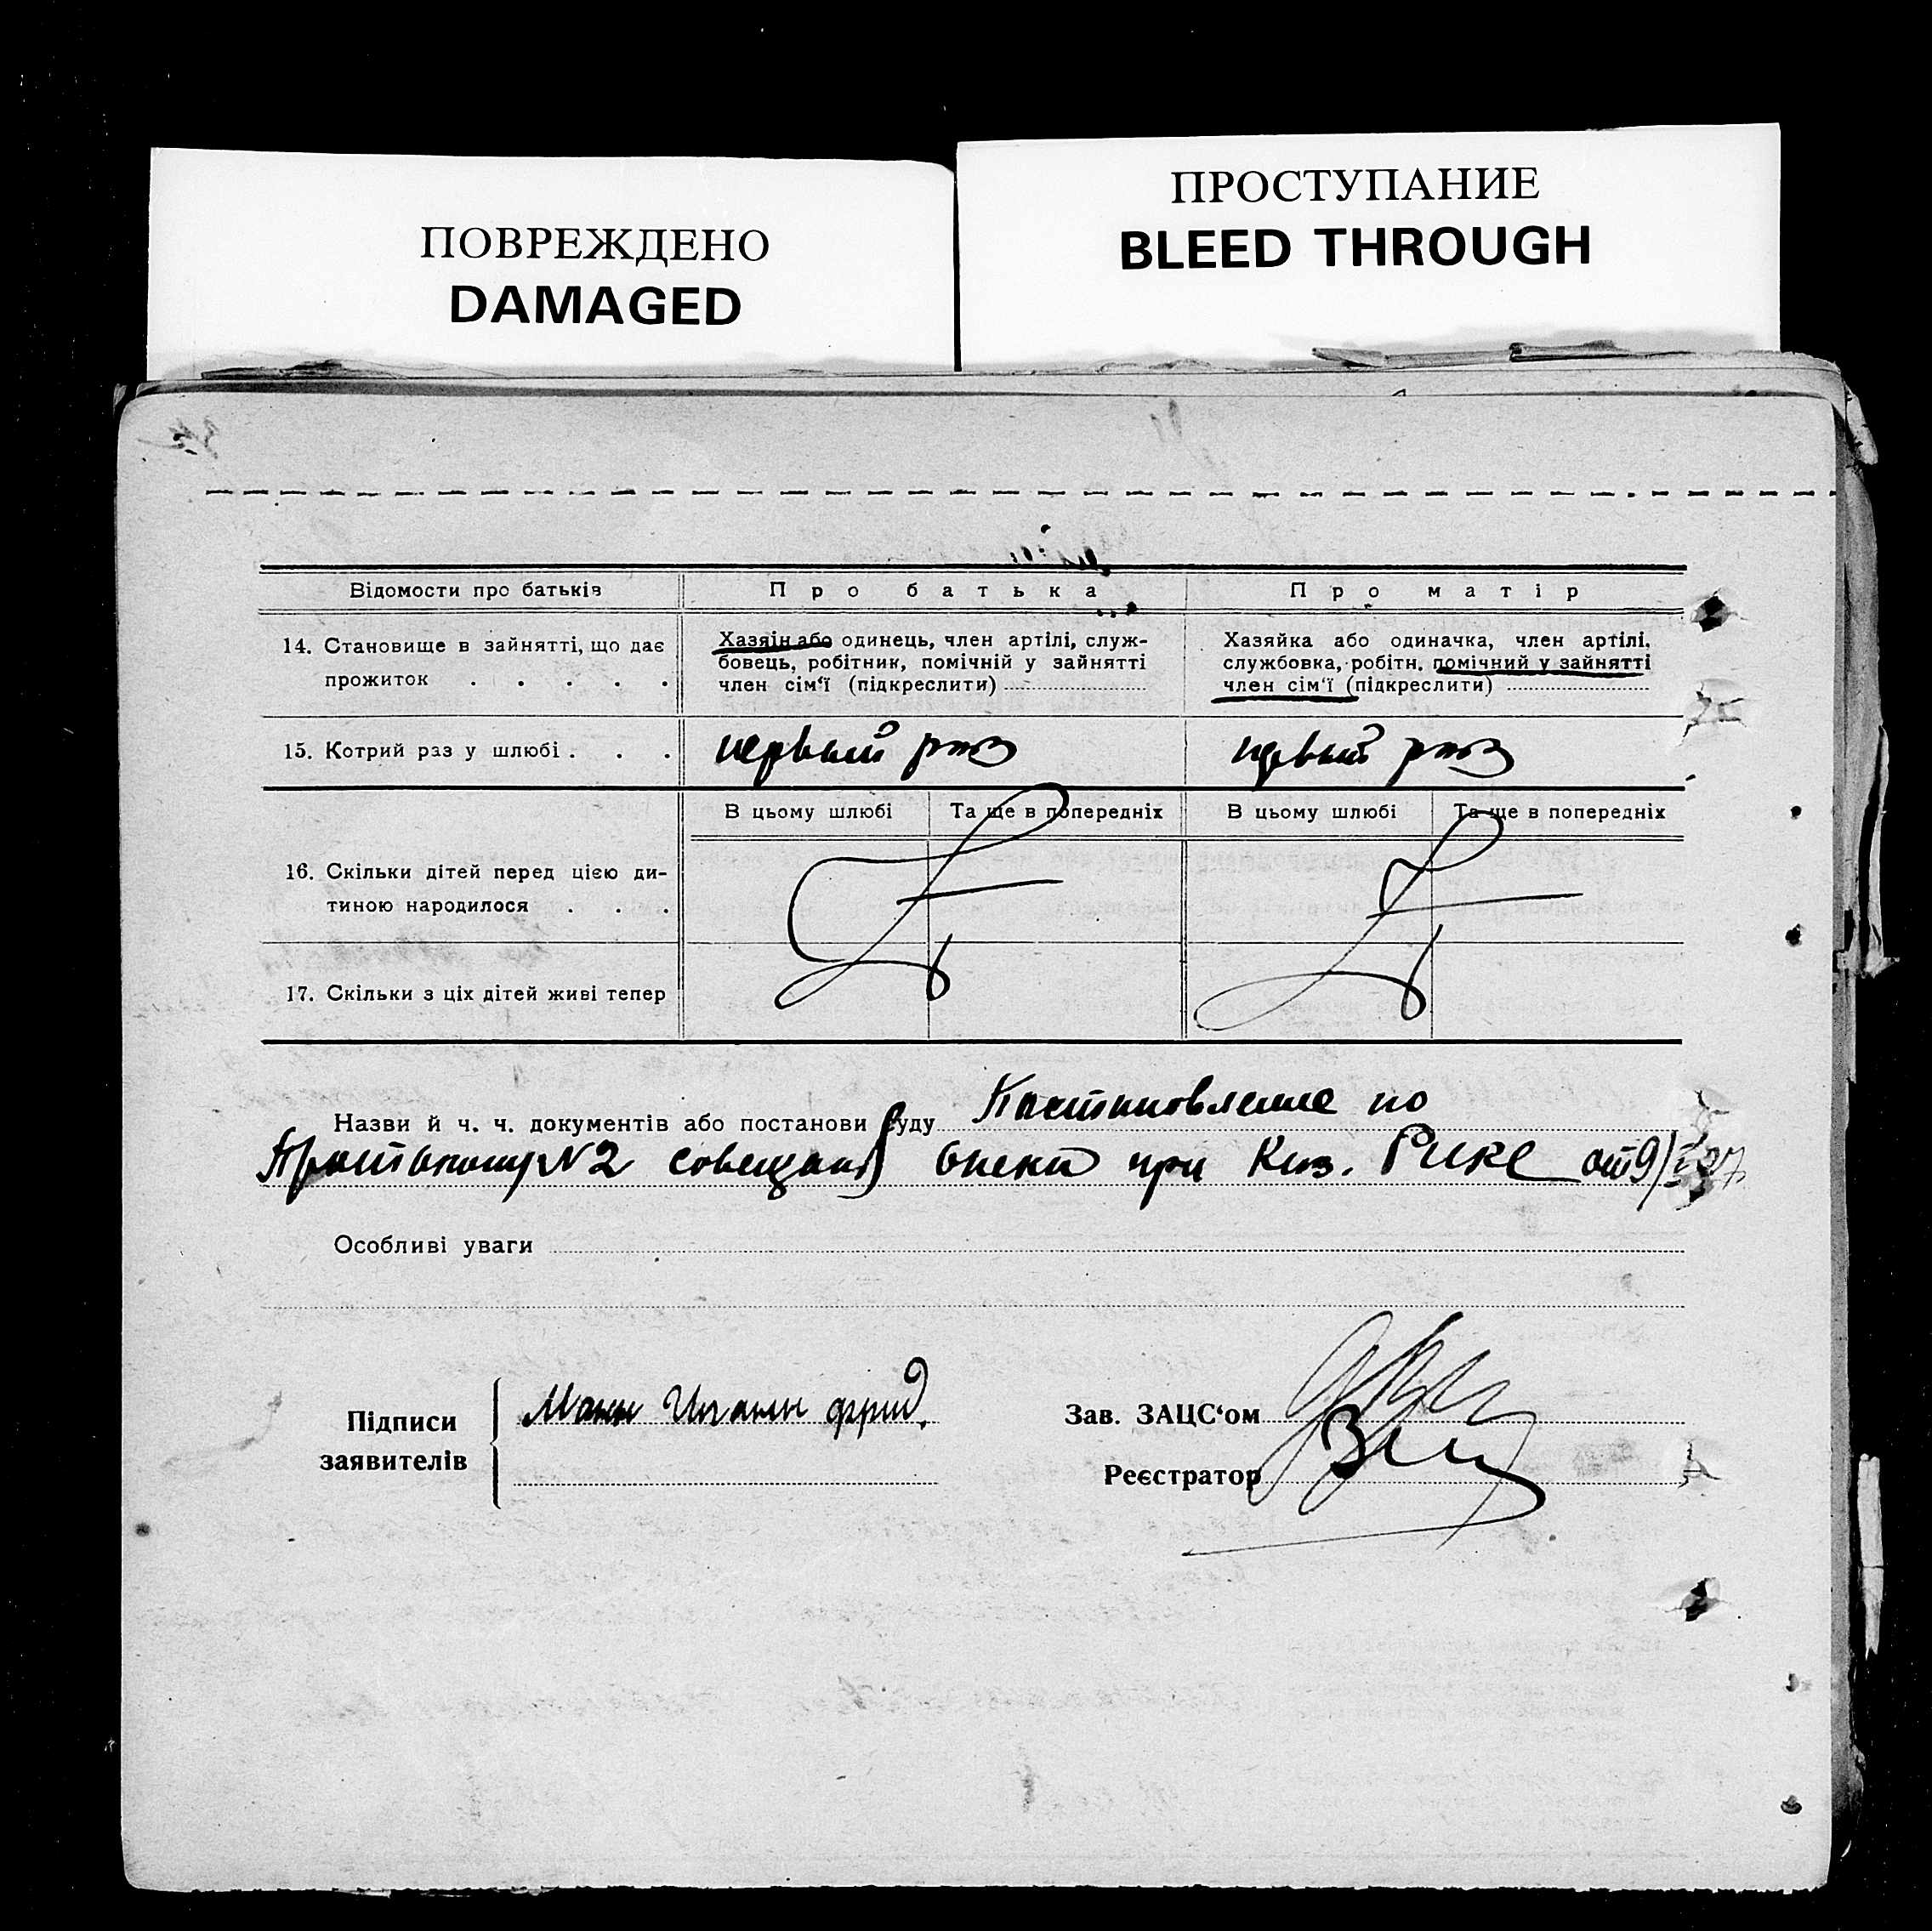 ПОВРЕЖДЕНО
DAMAGED
ПРОСТУПАНИЕ
BLEED THROUGH
Відомости про батьків
Про батька
Про матір
14. Становище в зайнятті, що дає
прожиток . . . . .
Хазяїн або одинець, член артілі, служ-
бовець, робітник, помічній у зайнятті
член сім'ї (підкреслити)
Хазяйка або одиначка, член артілі,
службовка, робітн. помічний у зайнятті
член сім'ї (підкреслити)
15. Котрий раз у шлюбі . . .
первый раз
первый раз
В цьому шлюбі
Та ще в попередніх
В цьому шлюбі
Та ще в попередніх
16. Скільки дітей перед цією ди-
тиною народилося . . .
17. Скільки з ціх дітей живі тепер
Назви й ч. ч. документів або постанови суду Постановление по
Протоколу N2 совещания опеки при Рике от 9/
Особливі уваги
Підписи
заявителів
Манн Иоганн фрид.
Зав. ЗАЦС'ом
Реєстратор